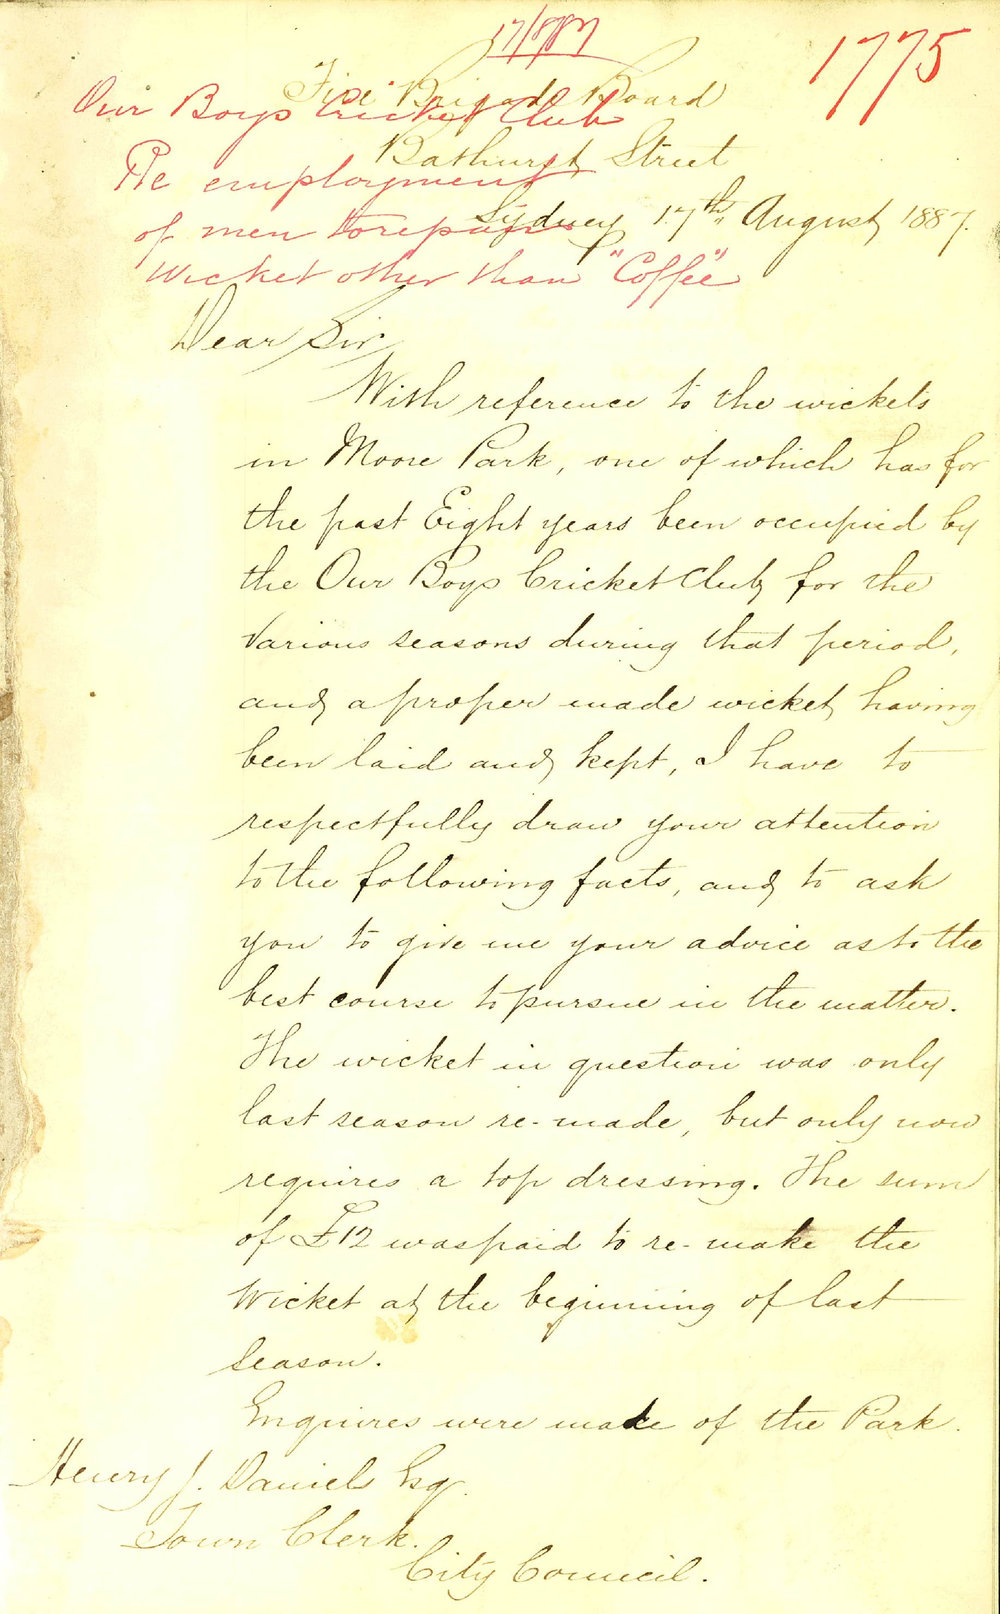 17/8/87
1775
Fire Brigade Board
Our Boys Cricket Club
Bathurst Street
Re employment
Sydney 17th August 1887.
of men to repair
Wicket other than "Coffee"
Dear Sir,
With reference to the wickets
in Moore Park, one of which has for
the past Eight years been occupied by
the Our Boys Cricket Club for the
various seasons during that period,
and a proper made wicket having
been laid and kept, I have to
respectfully draw your attention
to the following facts, and to ask
you to give me your advice as to the
best course to pursue in the matter.
The wicket in question was only
last season re-made, but only now
requires a top dressing. The sum
of £12 was paid to re-make the
Wicket at the beginning of last
season.
Enquires were made of the Park.
Henry J. Daniel Esq.
Town Clerk.
City Council.